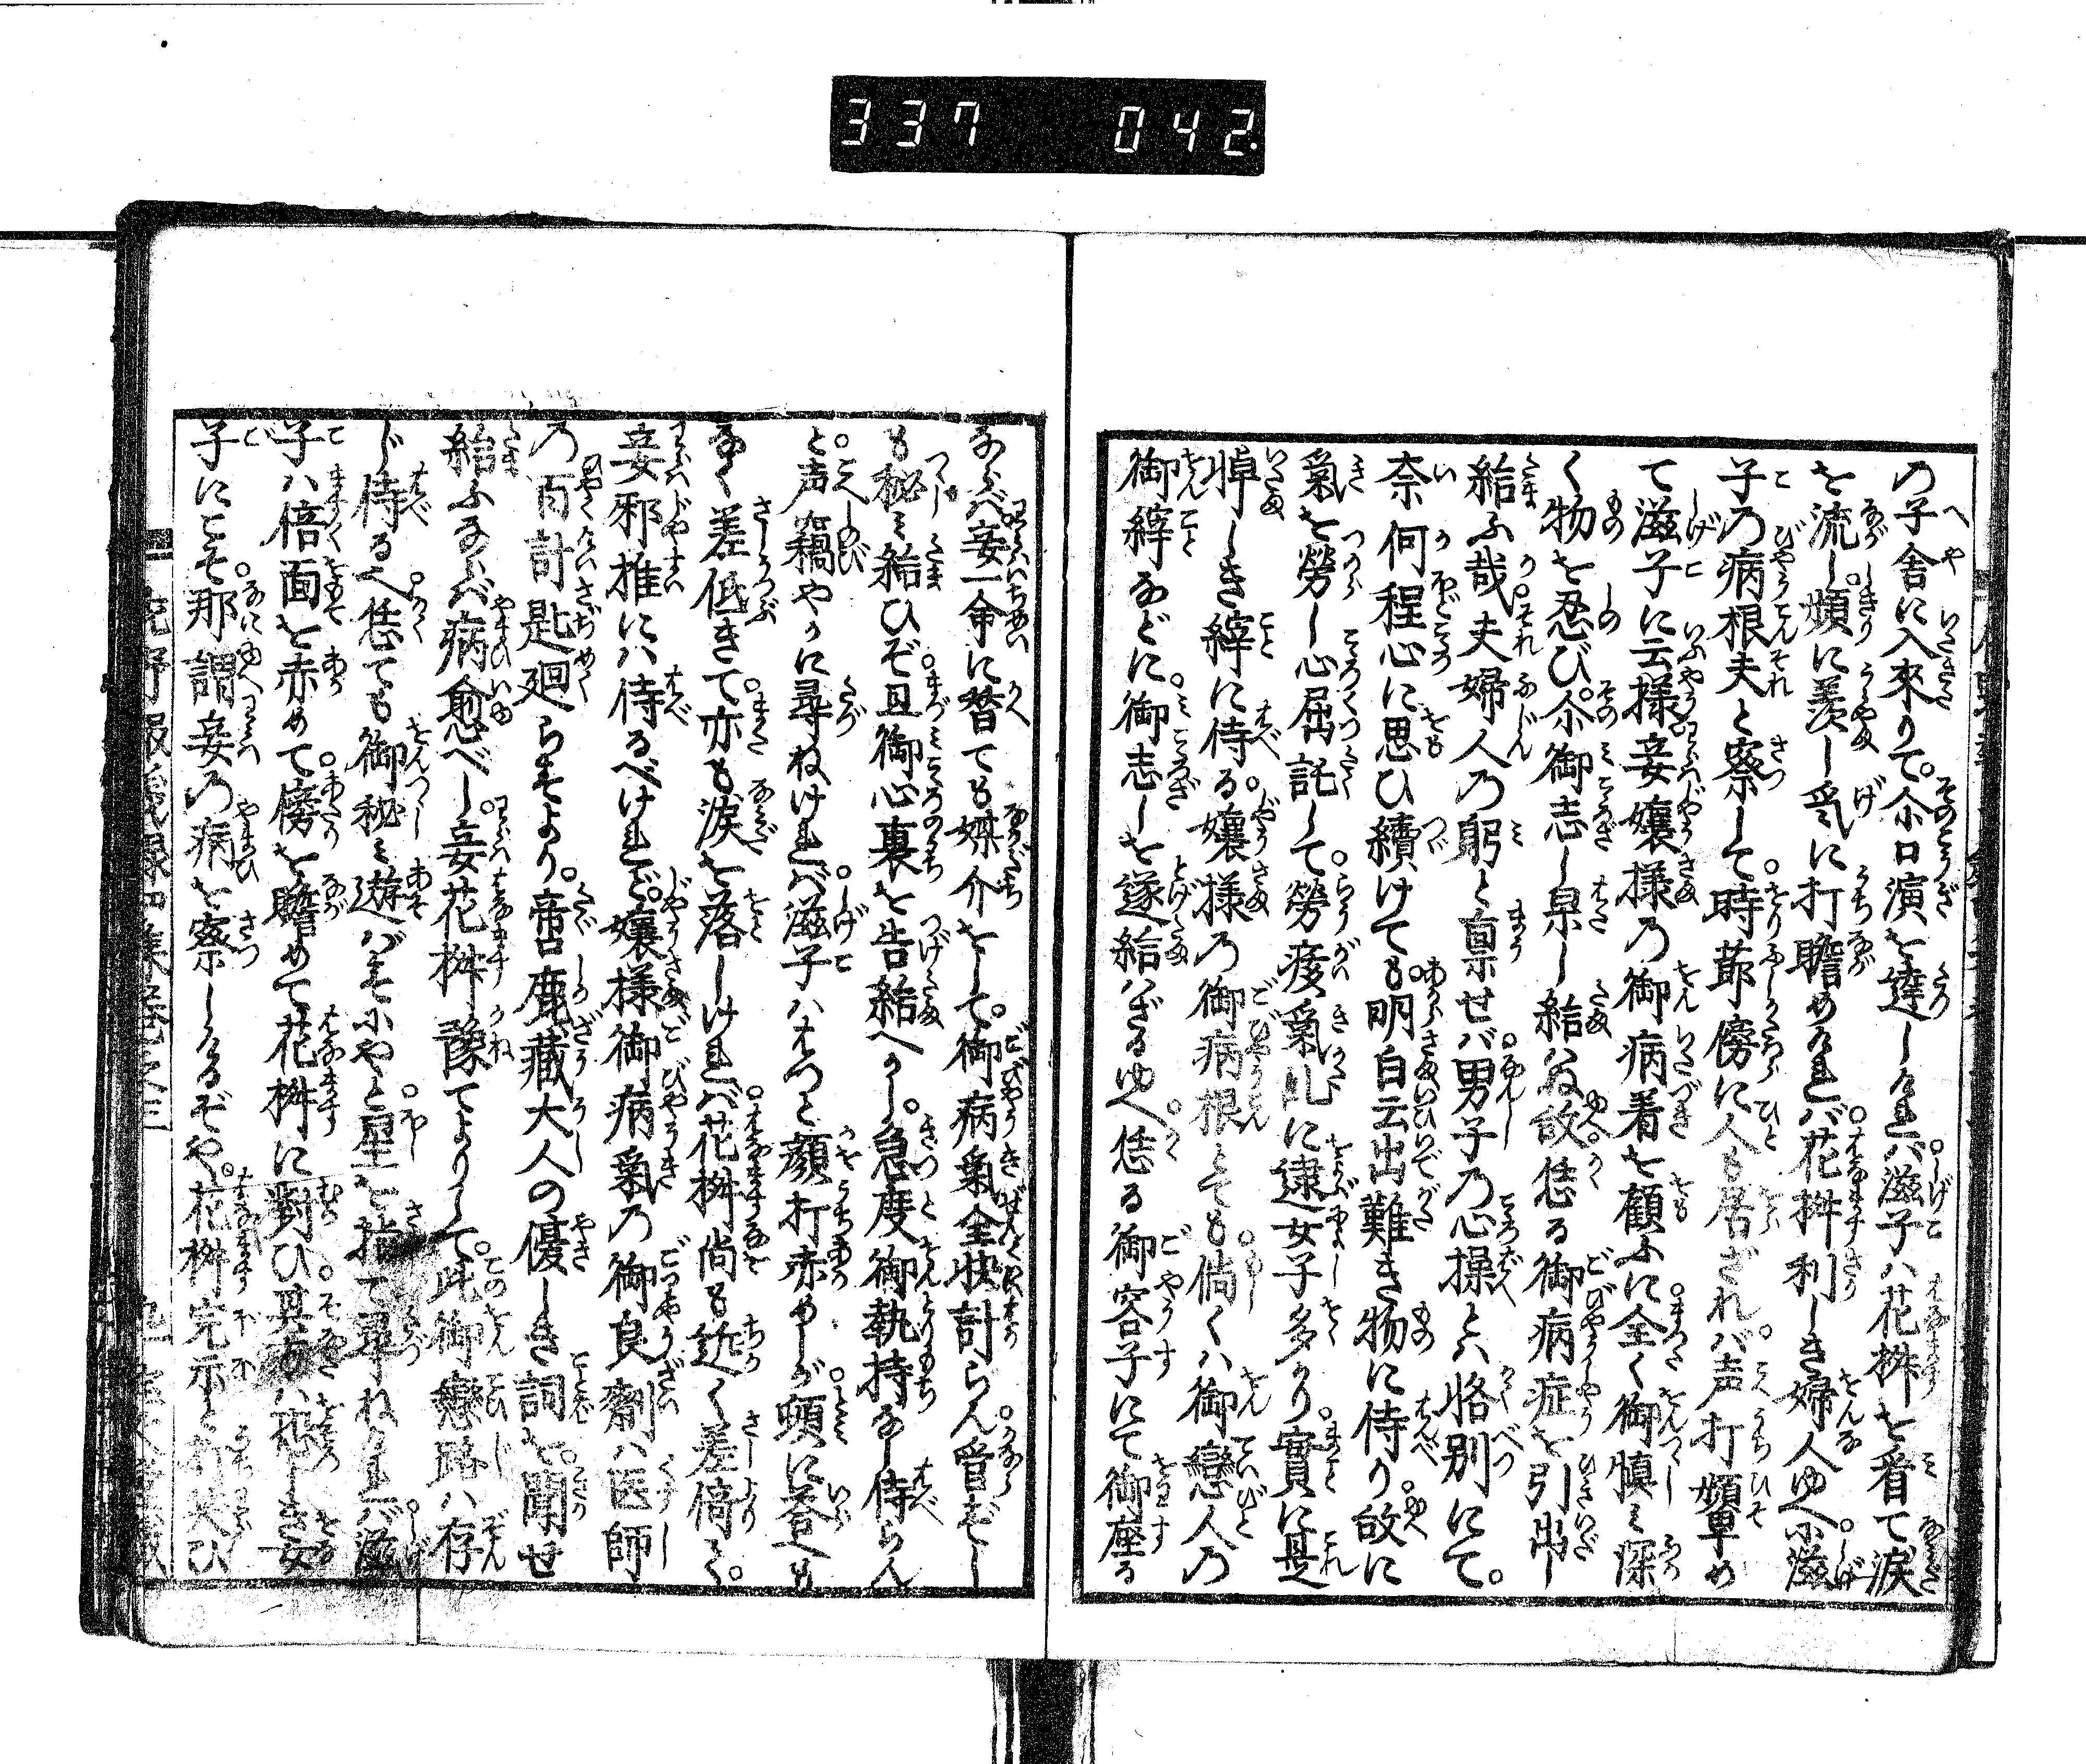 337 042
の子舎に入來りて。尒口演を達しけれバ滋子ハ花桝を看て涙
を流し頻に羨し気に打瞻めけれバ花桝利しき婦人ゆへ尒滋
子の病根夫と察して時節傍に人も居ざれバ。声打嚬め
て滋子に云様妾嬢様の御病着を顧ふに全く御慎ミ深
く物を忍び。尒御志し果し給ハぬ故恁る御病症を引出し
給ふ哉夫婦人の躬と禀せバ男子の心操とハ恪別にて。
奈何程心に思ひ續けても。明白云出難き物に侍り故に
氣を勞し心屈託して。勞痎氣に逮女子多かり。實に是
悼しき縡に侍る。嬢様の御病根とても倘くハ御戀人の
御縡などに。御志しを遂給ハざるゆへ。恁る御容子にて御座る
ならバ。妾一命に替ても媒介をして。御病氣全快計らん。管ずし
も秘ミ給ひぞ。且御心裏を告給へかし。急度御執持なし侍らん
と。声竊やかに尋ねけれバ。滋子ハはつと顔打赤めしが。頓に荅も
なく差低きて。亦も涙を落しけれバ。花桝尚も近く差倚て。
妾邪推にハ侍るべけれど。嬢様御病氣の御良劑ハ医師
の百計匙廻らすより。啻鹿藏大人の優しき詞を。聞せ
給ふならバ病愈べし。妾花桝豫てよりして。此御戀路ハ存
じ侍る也。恁ても御秘ミ遊バすにやと。星を指て尋ねけれバ。滋
子ハ倍面を赤めて。傍を瞻めて花桝に對ひ。其方ハ恐しき女
子にこそ。那謂妾の病を察しけるぞや。花桝完尒と打笑ひ